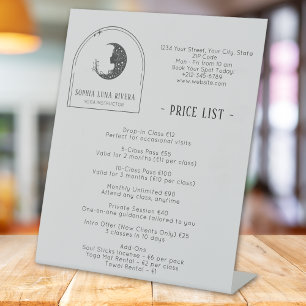 SOPHIA LUNA RIVERA
YOGA INSTRUCTOR
1234 Your Street, Your City, State
ZIP Code
Mon - Fri from 10 am
Book Your Spot Today:
+212-545-6789
www.website.com
- PRICE LIST -
Drop-in Class £12
Perfect for occasional visits
5-Class Pass £55
Valid for 2 months (£11 per class)
10-Class Pass £100
Valid for 3 months (£10 per class)
Monthly Unlimited £90
Attend any class, anytime
Private Session £40
One-on-one guidance tailored to you
Intro Offer (New Clients Only) £25
3 classes in 10 days
Add-Ons
Soul Sticks Incense - £6 per pack
Yoga Mat Rental - £2 per class
Towel Rental - £1